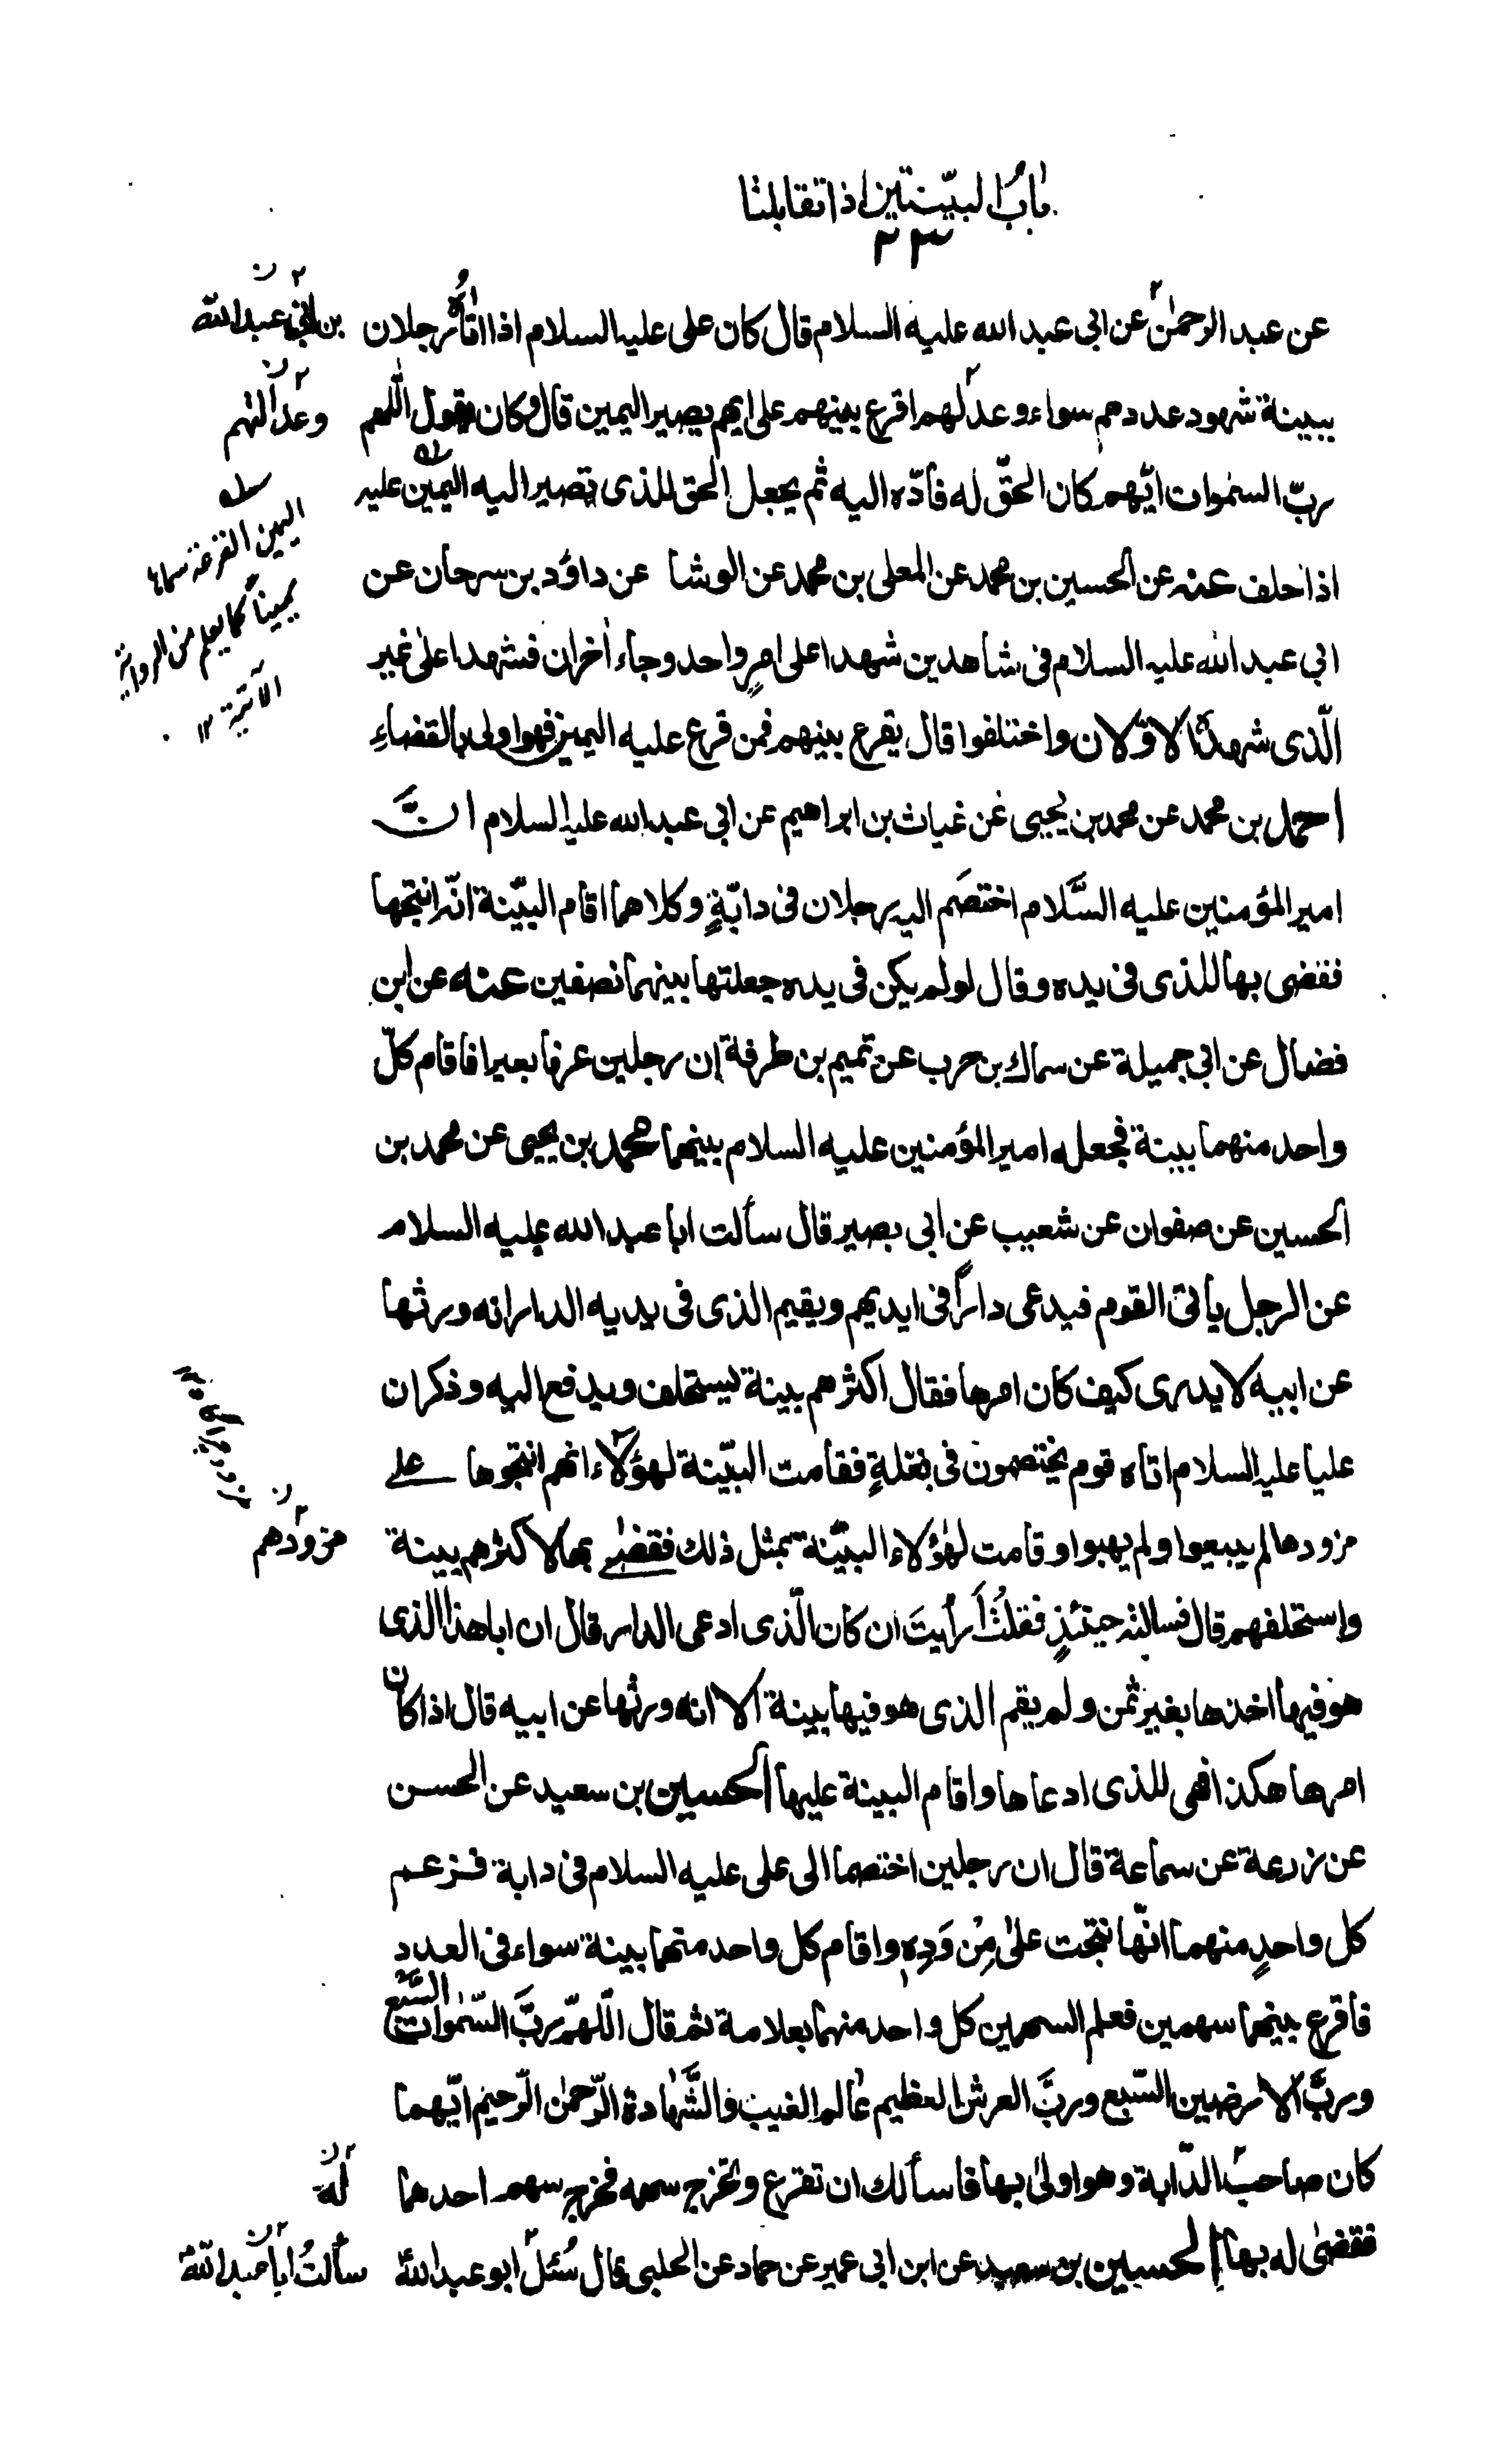 باب البيّنتين اذا تقابلتا
٢٣
عن عبد الرحمٰن عن ابى عبد الله عليه السلام قال كان على عليه السلام اذا اتاه رجلان
بن ابى عبد الله
ببينة شهود عددهم سواء وعدلهم اقرع بينهم على ايهم يصير اليمين قال وكان يقول اللّهم
وعدالتهم
ربّ السمٰوات ايّهم كان الحقّ له فادّه اليه ثم يجعل الحق للذى تصير اليه اليمين عليه
اليمين القرعة سماها
يمينا كما يعلم من الرواية
الآتية ١٢
اذا حلف عنه عن الحسين بن محمد عن المعلى بن محمد عن الوشا عن داؤد بن سرحان عن
ابى عبد الله عليه السلام فى شاهدين شهدا على امرٍ واحد وجاء اٰخران فشهدا على غير
الّذى شهدا الاوّلان واختلفوا قال يقرع بينهم فمن قرع عليه اليمين فهو اولى بالقضاءِ
احمد بن محمد عن محمد بن يحيى عن غياث بن ابراهيم عن ابى عبد الله عليه السلام انَّ
امير المؤمنين عليه السَّلام اختصَم اليه رجلان فى دابّةٍ وكلاهما اقام البيّنة انّه انتجها
فقضى بها للذى فى يده وقال لو لم يكن فى يده جعلتها بينهما نصفين عنه عن ابن
فضال عن ابى جميلة عن سماك بن حرب عن تميم بن طرفة ان رجلين عرفا بعيرا فاقام كلّ
واحد منهما بينة فجعله امير المؤمنين عليه السلام بينهما محمد بن يحيى عن محمد بن
الحسين عن صفوان عن شعيب عن ابى بصير قال سألت ابا عبد الله عليه السلام
عن الرجل يأتى القوم فيدعى داراً فى ايديهم ويقيم الذى فى يديه الدار انه ورثها
عن ابيه لا يدرى كيف كان امرها فقال اكثرهم بينة يستحلف ويدفع اليه وذكر ان
عليا عليه السلام اتاه قوم يختصمون فى بغلةٍ فقامت البيّنة لهؤلاء انهم انتجوها على
مزودها لم يبيعوا ولم يهبوا وقامت لهٰؤلاء البيّنة بمثل ذلك فقضى بها لاكثرهم بينة
مزودهم
واستحلفهم قال فسالته حينئذٍ فقلتُ أرأيتَ ان كان الّذى ادعى الدار قال ان ابا هذا الذى
هو فيها اخذها بغير ثمن ولم يقم الذى هو فيها بينة الا انه ورثها عن ابيه قال اذا كان
امرها هكذا فهى للذى ادعاها واقام البينة عليها الحسين بن سعيد عن الحسن
عن زرعة عن سماعة قال ان رجلين اختصما الى على عليه السلام فى دابة فزعم
كل واحدٍ منهما انّها نتجت علىٰ مِذْوَدِه واقام كل واحد منهما بينة سواء فى العدد
فاقرع بينهما سهمين فعلم السهمين كل واحد منهما بعلامة ثم قال اللّهمّ ربَّ السّمٰوات السَّبْع
وربَّ الارضين السّبع وربَّ العرش العظيم عٰالم الغيب والشَّهٰادة الرّحمٰن الرّحيم ايّهما
كان صاحبُ الدّابة وهو اولىٰ بها فاسألك ان تقرع وتخرج سهمه فخرج سهم احدهما
له
فقضىٰ له بها الحسين بن سعيد عن ابن ابى عمير عن حماد عن الحلبى قال سُئل ابو عبد الله
سألتُ ابا عبد الله